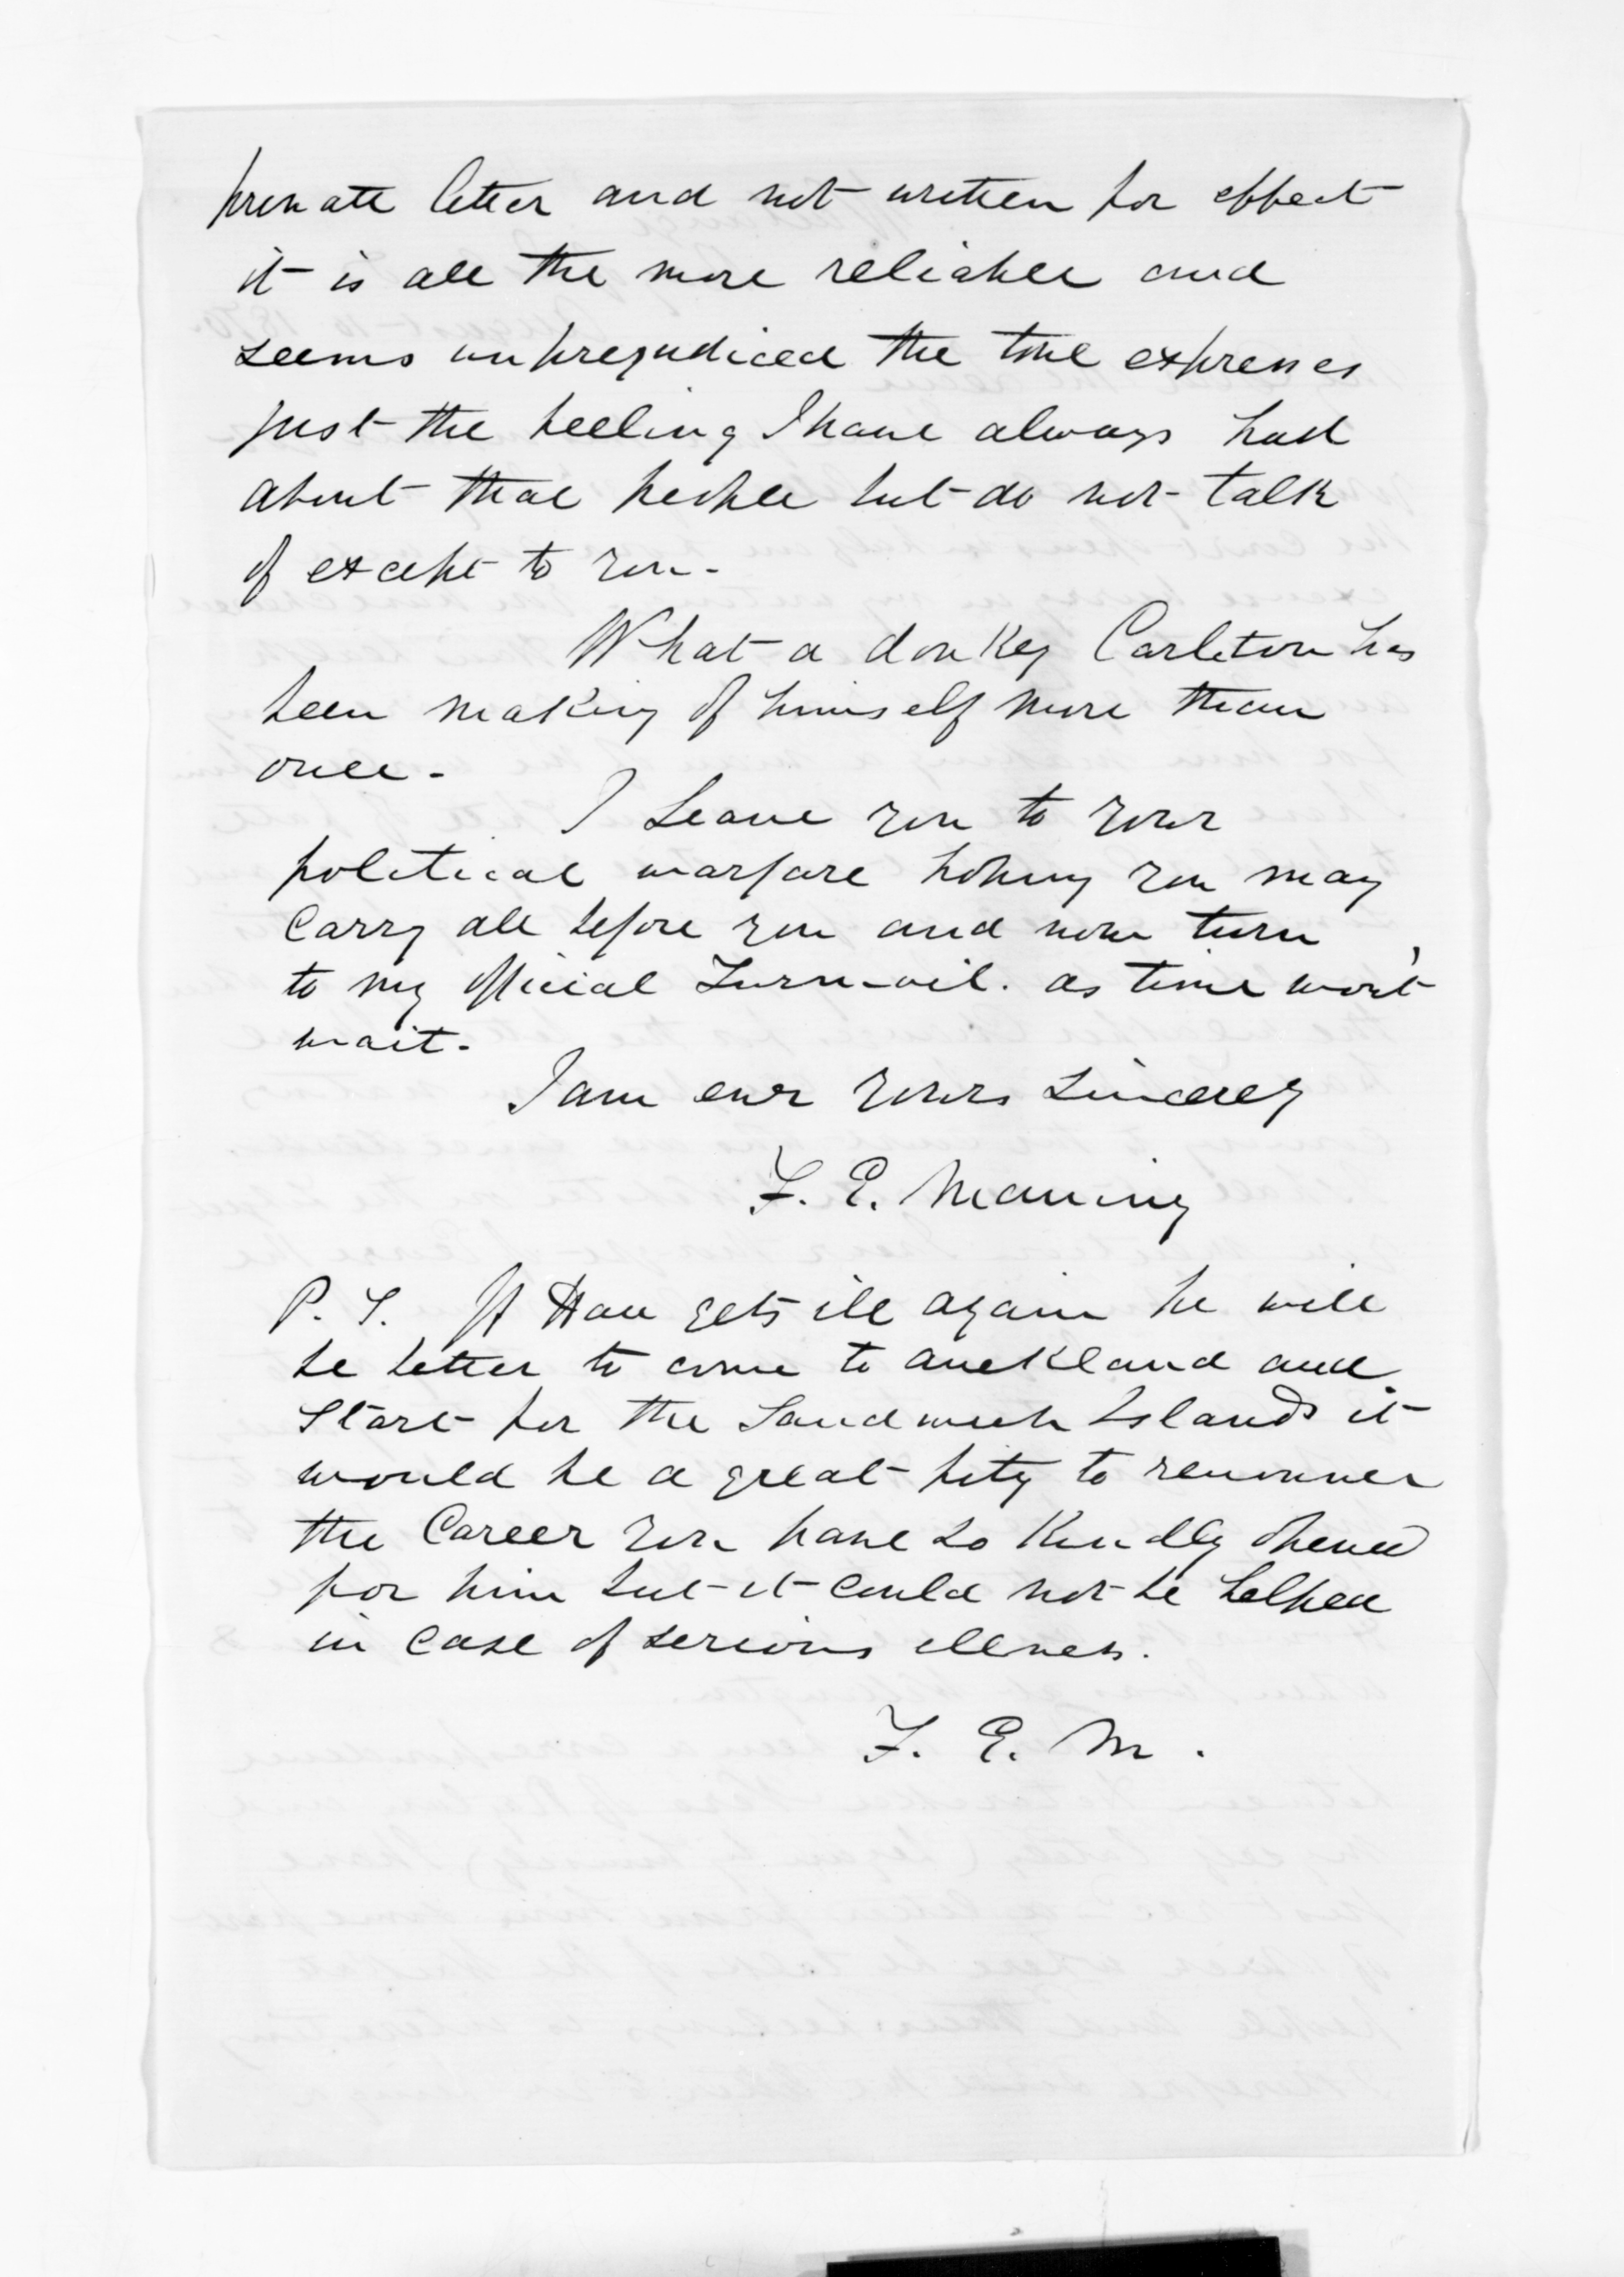 private letter and not written for effect
it is all the more reliable and
seems unprejudiced the tone expresses
just the feeling I have always had
about that people but do not talk
of except to you.
What a donkey Carleton has
been making of himself more than
once.
I Leave you to your
political warfare hoping you may
Carry all before you and now turn
to my official Turm-oil. as time won't
wait.
I am ever yours Sincerely
F. E. Maning
P. S. If Hau gets ill again he will
be better to come to auckland and
Start for the Sandwich Islands it
would be a great pity to renounce
the Career you have so Kindly opened
for him but it could not be helped
in case of serious illness.
F. E. M.